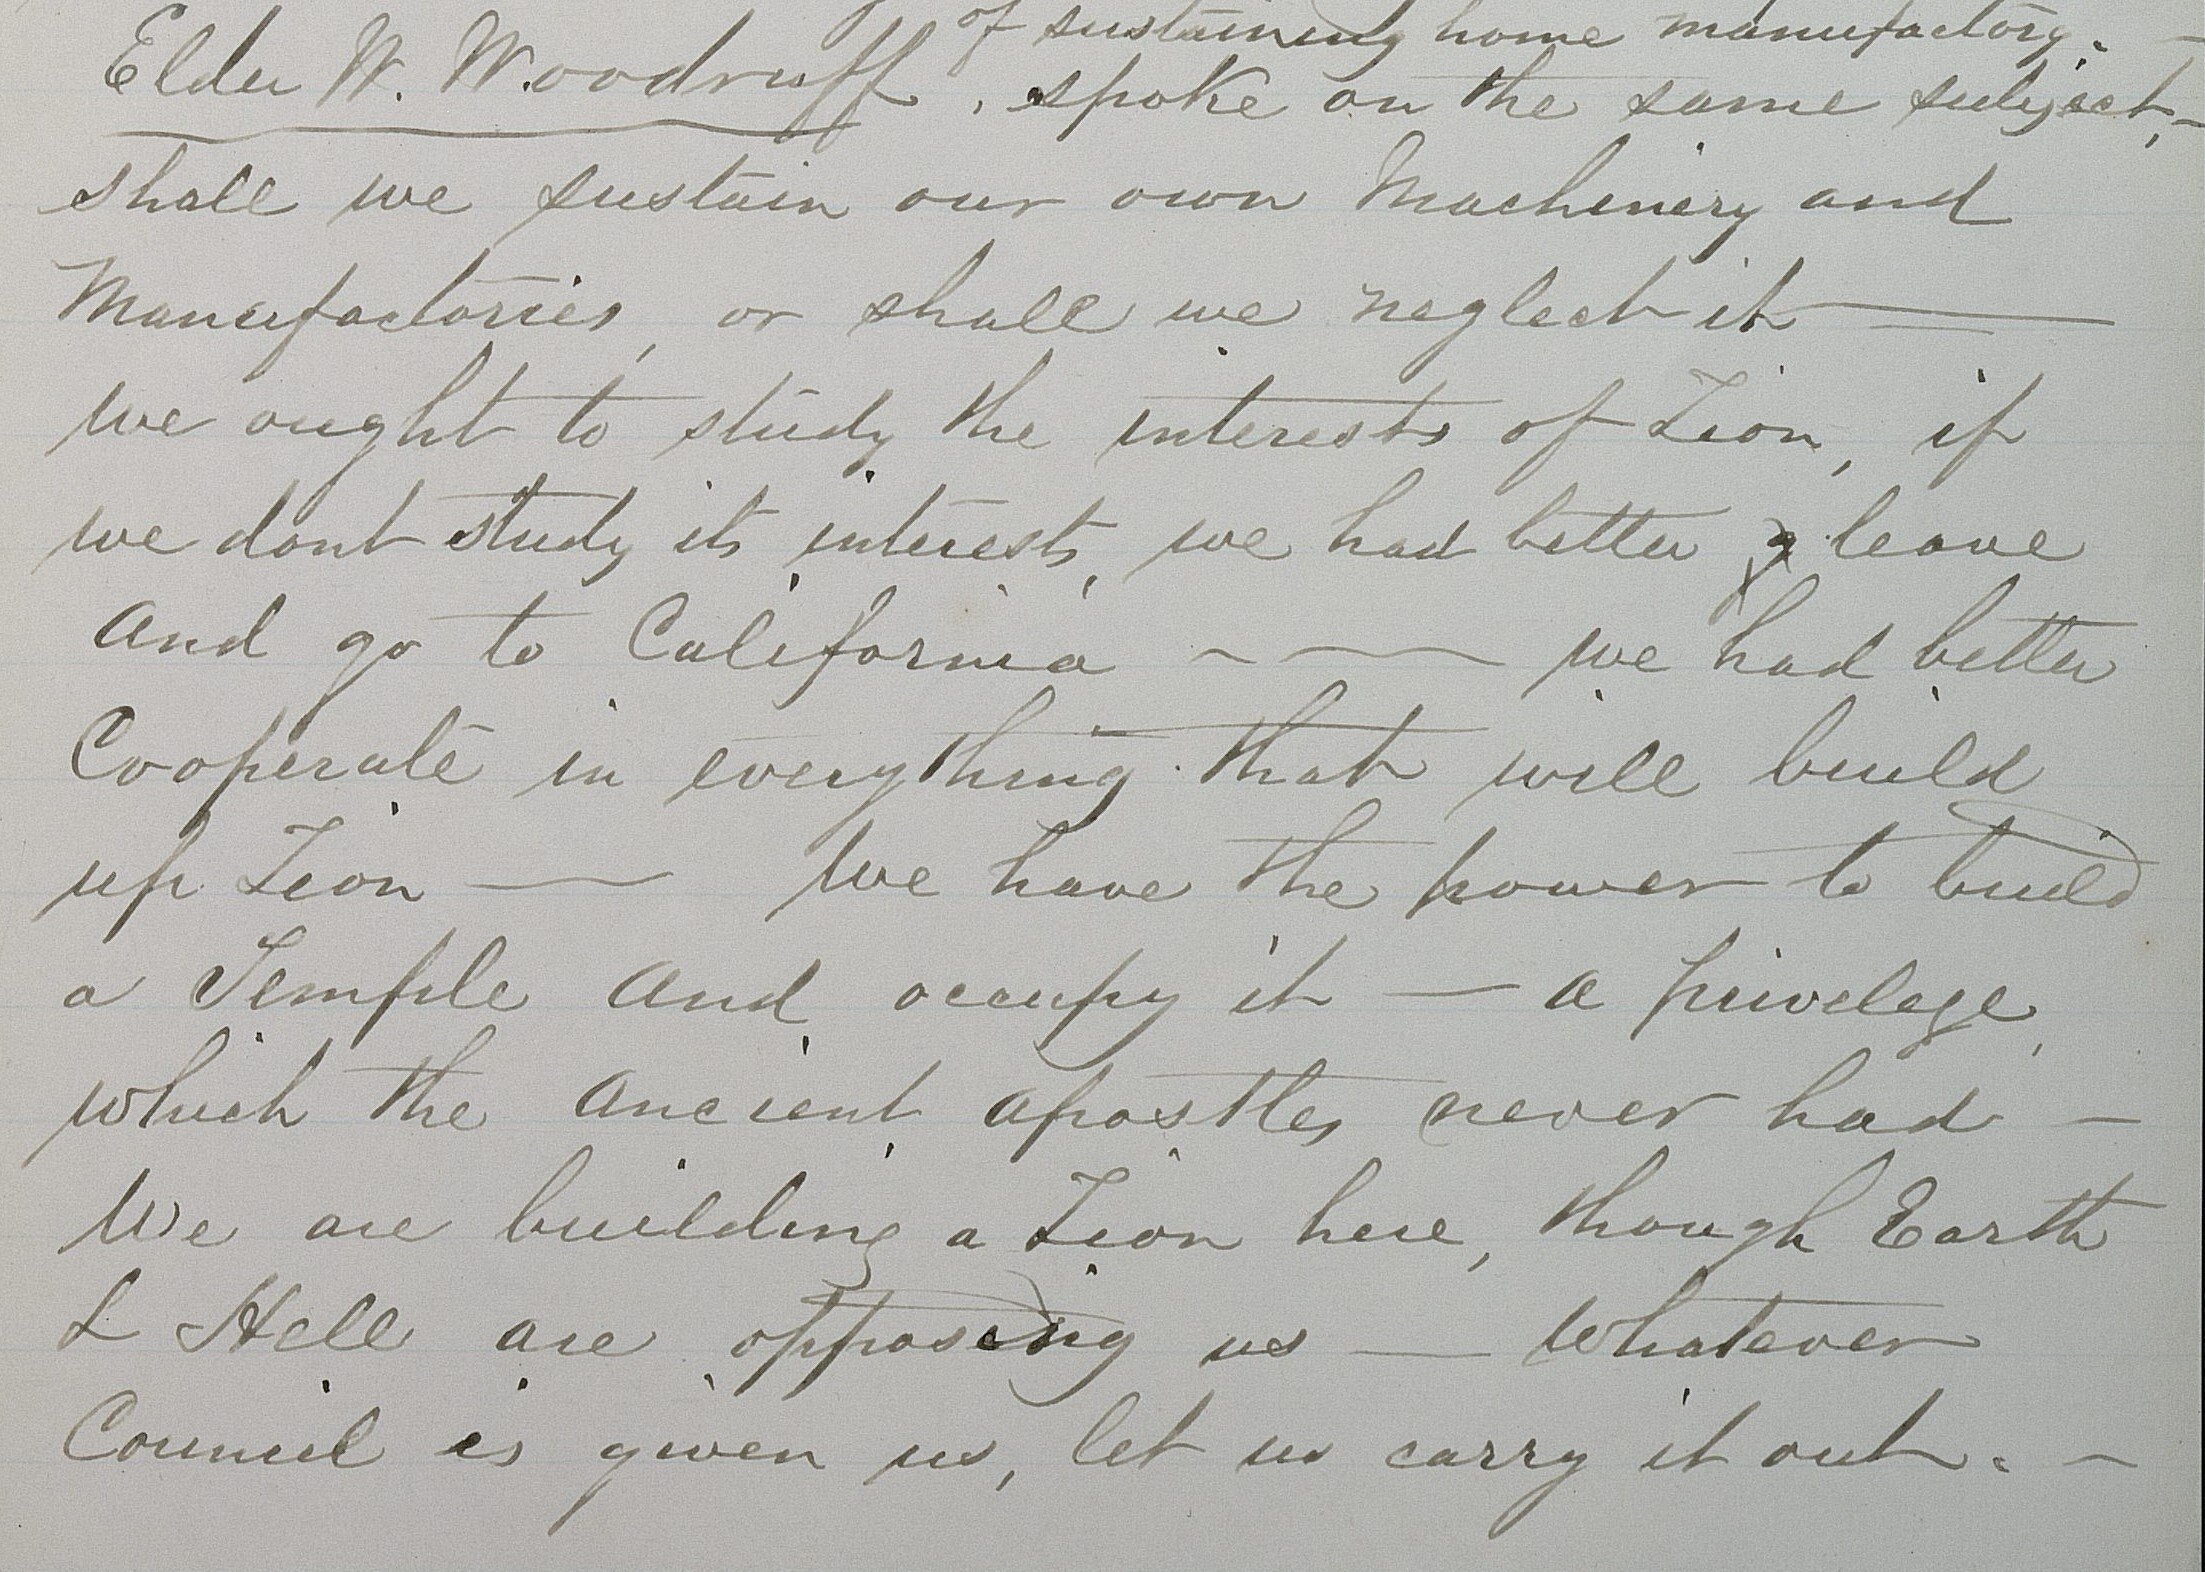 of sustaining home manufactory. —
Elder W. Woodruff, spoke on the same subject, —
shall we sustain our own Machinery and
Manufactories, or shall we neglect it —
we ought to study the interests of Zion, if
we dont study its interests, we had better leave
and go to California — — we had better
Cooperate in everything that will build
up Zion — We have the power to build
a Temple and occupy it — a privelege,
which the ancient apostles never had —
We are building a Zion here, though Earth
& Hell are opposing us — Whatever
Council is given us, let us carry it out. —